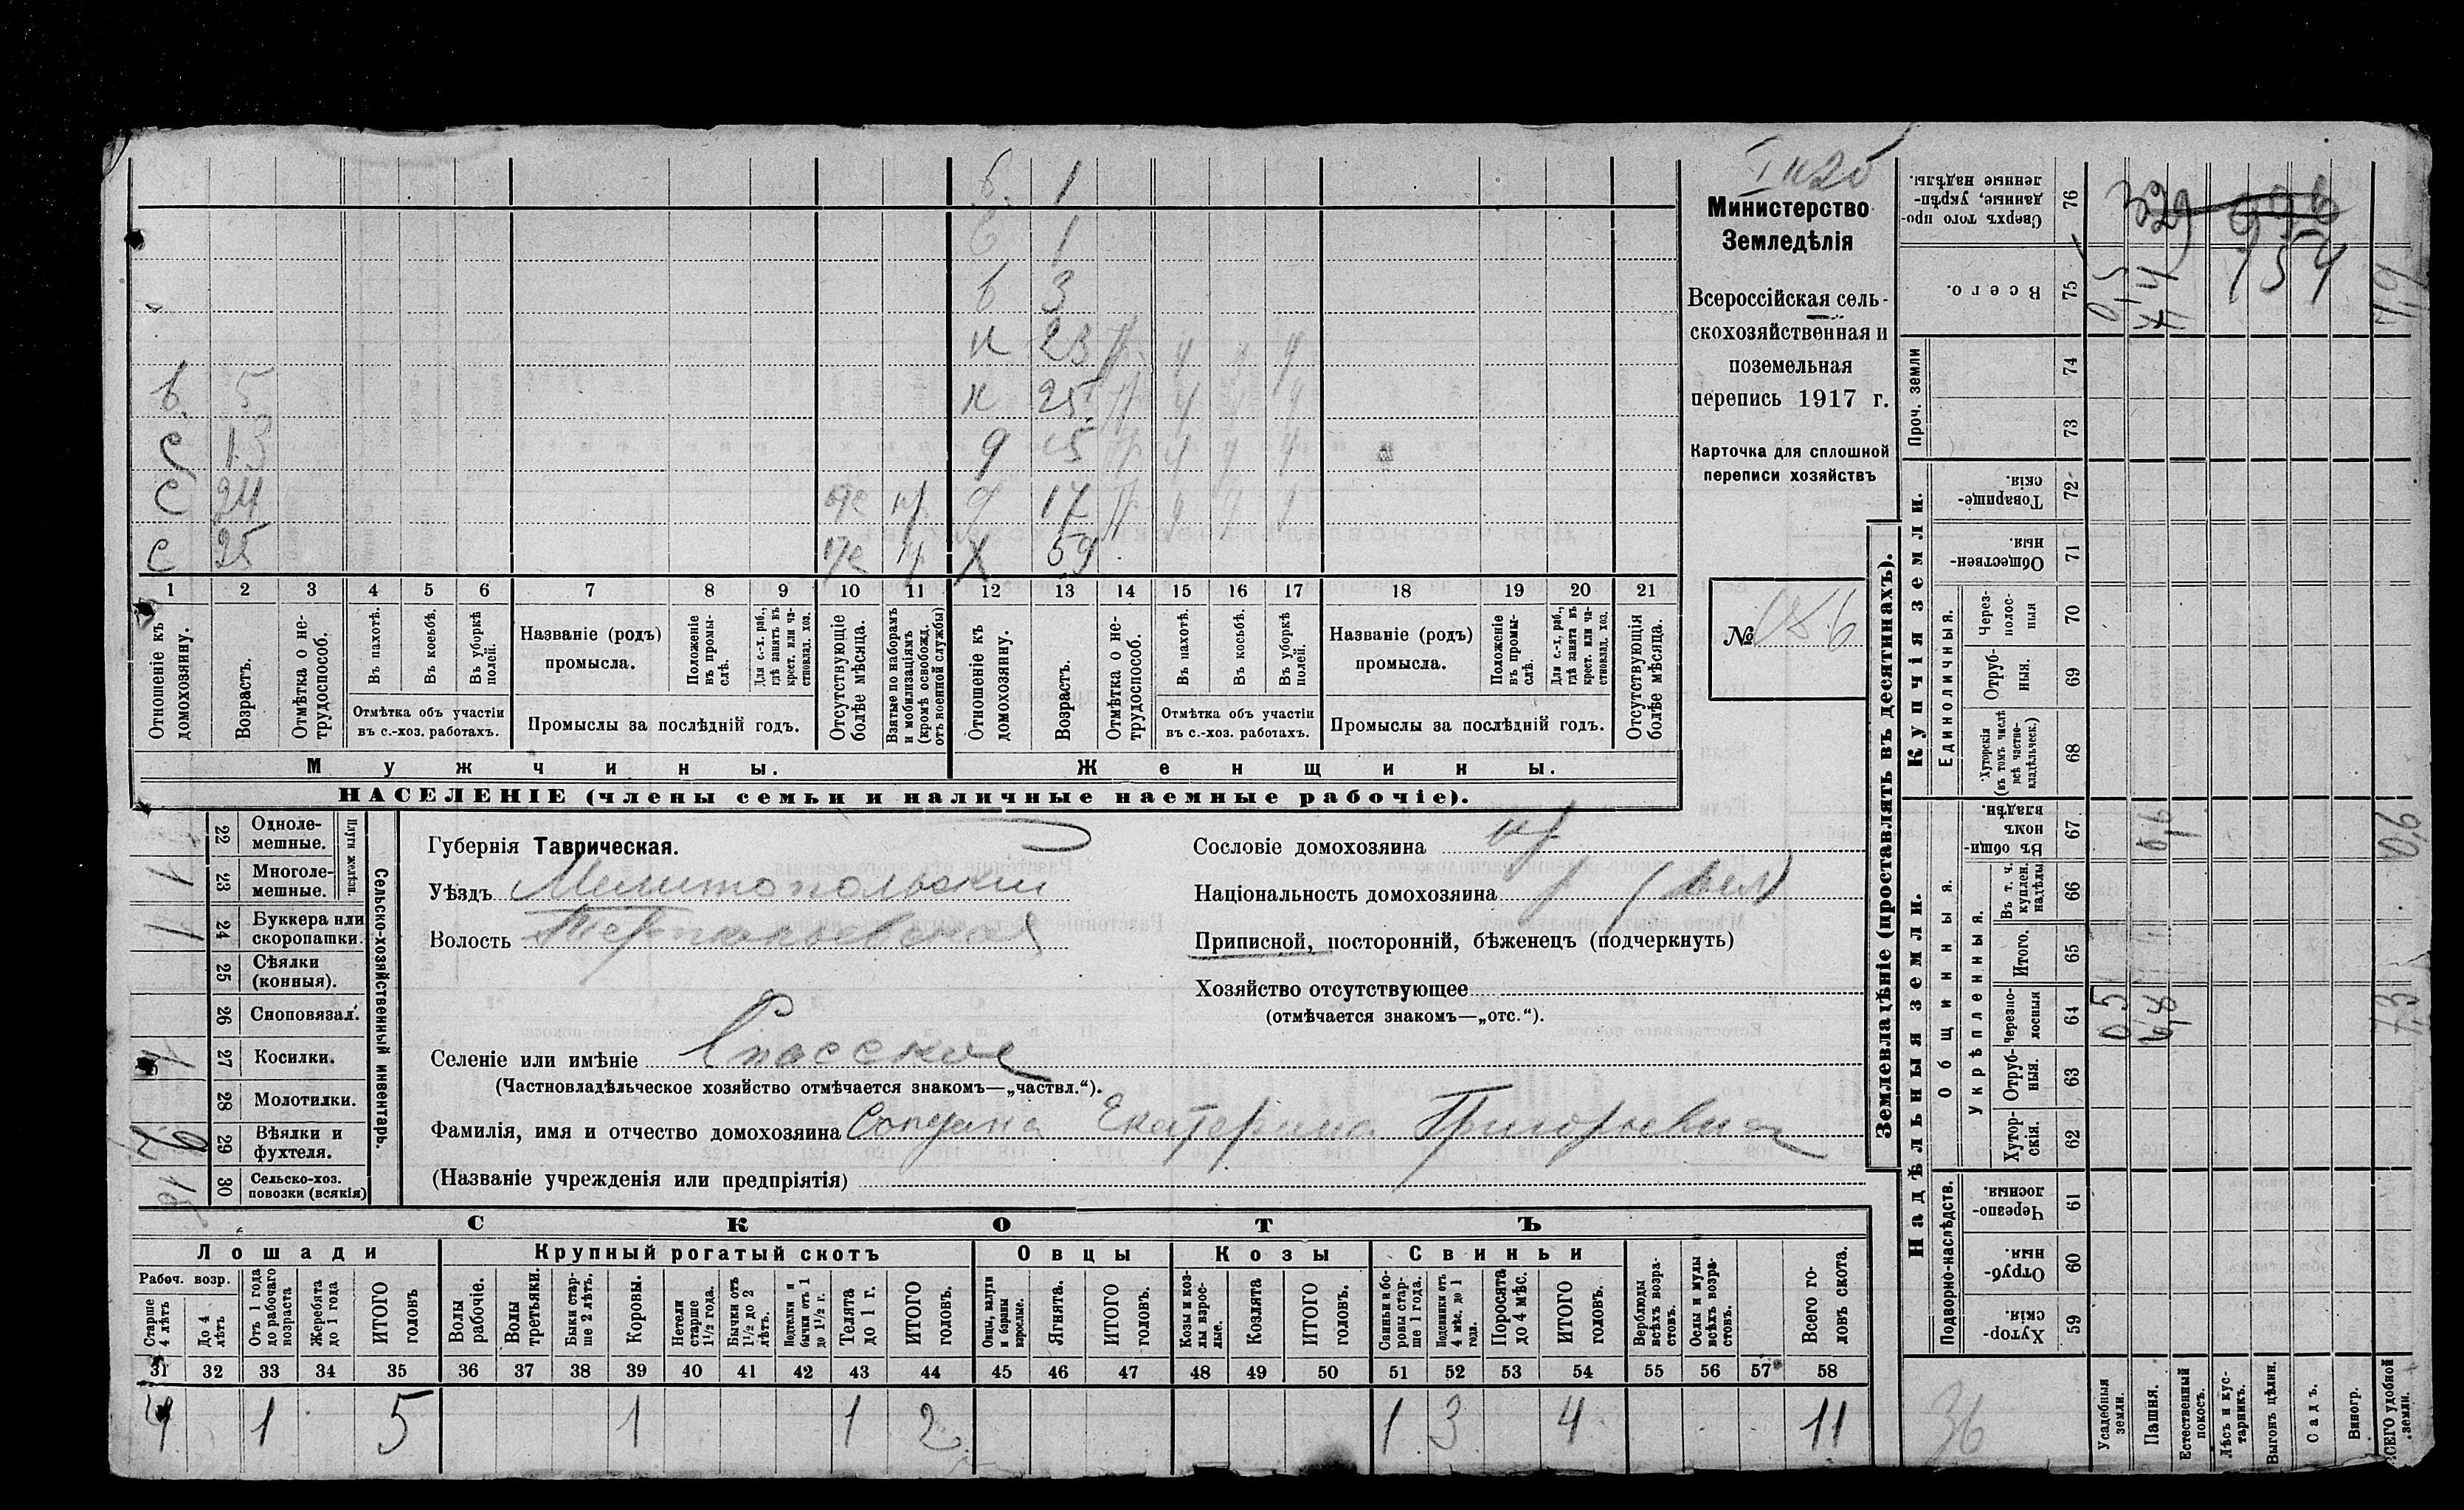 Министерство
Земледѣлія
Всероссійская сель-
скохозяйственная и
поземельная
перепись 1917 г.
Карточка для сплошной
переписи хозяйствъ
№ 186
б. 1
б 1
б 3
н 23
в. 5 н 25
с 13 д 15
с 24 д 17
с 25 х 59
1 2 3 4 5 6 7 8 9 10 11 12 13 14 15 16 17 18 19 20 21
Отношеніе къ домохозяину.
Возрастъ.
Отмѣтка о не-
трудоспособ.
Въ пахотѣ.
Въ косьбѣ.
Въ уборкѣ
полей.
Отмѣтка объ участіи
въ с.-хоз. работахъ.
Названіе (родъ)
промысла.
Положеніе
въ промы-
слѣ.
Для с.-х. раб.,
гдѣ занятъ въ
крест. или ча-
стновлад. хоз.
Промыслы за послѣдній годъ.
Отсутствующіе
болѣе мѣсяца.
Взятые по наборамъ
и мобилизаціямъ
(кромѣ освобожд.
отъ военной службы)
Отношеніе къ
домохозяину.
Возрастъ.
Отмѣтка о не-
трудоспособ.
Въ пахотѣ.
Въ косьбѣ.
Въ уборкѣ
полей.
Отмѣтка объ участіи
въ с.-хоз. работахъ.
Названіе (родъ)
промысла.
Положеніе
въ промы-
слѣ.
Для с.-х. раб.,
гдѣ занята въ
крест. или ча-
стновлад. хоз.
Промыслы за послѣдній годъ.
Отсутствующія
болѣе мѣсяца.
Мужчины.
Женщины.
НАСЕЛЕНІЕ (члены семьи и наличные наемные рабочіе).
Сельско-хозяйственный инвентарь.
Плуги желѣзн.
22 Одноле-
мешные.
23 Многоле-
мешные.
1
24 Буккера или
скоропашки.
1
25 Сѣялки
(конныя).
26 Сноповязал.
27 Косилки.
1
28 Молотилки.
29 Вѣялки и
фухтеля.
30 Сельско-хоз.
повозки (всякія)
Губернія Таврическая.
Уѣздъ Мелитопольскій
Волость
Селеніе или имѣніе Спасское
(Частновладѣльческое хозяйство отмѣчается знакомъ—„частвл.“).
Фамилія, имя и отчество домохозяина Екатерина Григорьевна
(Названіе учрежденія или предпріятія)
Сословіе домохозяина кр
Національность домохозяина
Приписной, посторонній, бѣженецъ (подчеркнуть)
Хозяйство отсутствующее
(отмѣчается знакомъ—„отс.“).
СКОТЪ
Лошади
Крупный рогатый скотъ
Овцы
Козы
Свиньи
Рабоч. возр.
Старше
4 лѣтъ
До 4
лѣтъ
Отъ 1 года
до рабочаго
возраста
Жеребята
до 1 года
ИТОГО
головъ
Волы
рабочіе.
Волы
третьяки.
Быки стар-
ше 2 лѣтъ.
Коровы.
Нетели
старше
1½ года.
Бычки отъ
1½ до 2
лѣтъ.
Подтелки и
бычки отъ 1
до 1½ г.
Телята
до 1 г.
ИТОГО
головъ.
Овцы, валухи
и бараны
взрослые.
Ягнята.
ИТОГО
головъ.
Козы и коз-
лы взрос-
лые.
Козлята
ИТОГО
головъ.
Свиньи и бо-
ровы стар-
ше 1 года.
Подсвинки отъ
4 мѣс. до 1
года.
Поросята
до 4 мѣс.
ИТОГО
головъ.
Верблюды
всѣхъ возра-
стовъ.
Ослы и мулы
всѣхъ возра-
стовъ.
Всего го-
ловъ скота.
31 32 33 34 35 36 37 38 39 40 41 42 43 44 45 46 47 48 49 50 51 52 53 54 55 56 57 58
4 1 5 1 1 2 1 3 4 11
Землевладѣніе (проставлять въ десятинахъ).
Надѣльныя земли.
Купчія земли.
Проч. земли
Подворно-наслѣдств.
Общинныя.
Укрѣпленныя.
Единоличныя.
Сверхъ того про-
данные, укрѣп-
ленные надѣлы.
76
Всего.
75
0,5
154
74
73
Товарище-
скія.
72
Обществен-
ныя.
71
Через-
полос-
ныя
70
Отруб-
ныя.
69
Хуторскія
(въ томъ числѣ
всѣ частно-
владѣльческ.)
68
Въ общин-
номъ
владѣн.
67
Въ т. ч.
куплен.
надѣлы
66
Итого.
65
Черезпо-
лосныя
64
0,5
6,8
7,3
Отруб-
ныя.
63
Хутор-
скія.
62
Черезпо-
лосныя.
61
Отруб-
ныя.
60
Хутор-
скія.
59
36
Усадебныя
земли.
Пашня.
Естественный
покосъ.
Лѣсъ и кус-
тарникъ.
Выгонъ цѣлин.
Садъ.
Виногр.
ВСЕГО удобной
земли.